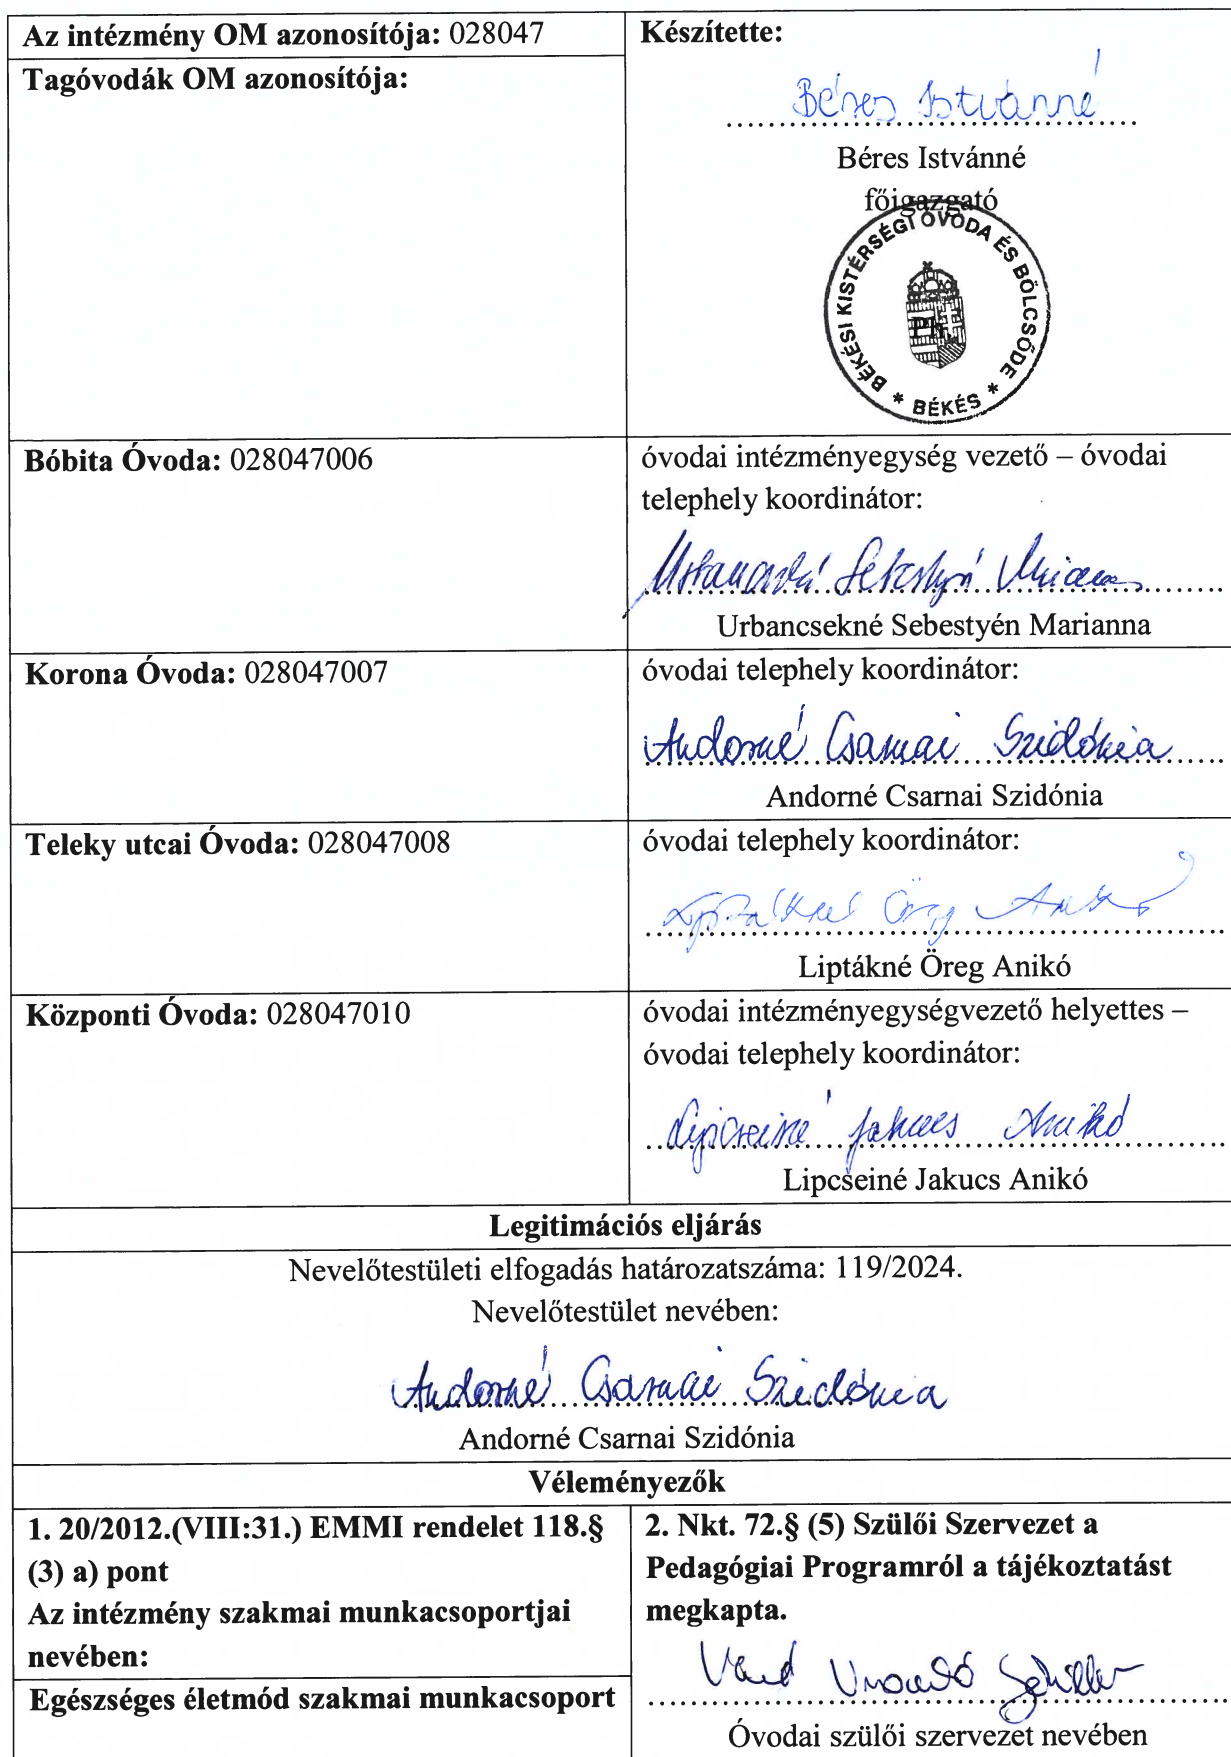 Az intézmény OM azonosítója: 028047
Készítette:
Tagóvodák OM azonosítója:
Béres Istvánné
Béres Istvánné
főigazgató
BÉKÉSI KISTÉRSÉGI ÓVODA ÉS BÖLCSŐDE
* BÉKÉS *
Bóbita Óvoda: 028047006
óvodai intézményegység vezető – óvodai
telephely koordinátor:
Urbancsekné Sebestyén Marianna
Korona Óvoda: 028047007
óvodai telephely koordinátor:
Andorné Csarnai Szidónia
Andorné Csarnai Szidónia
Teleky utcai Óvoda: 028047008
óvodai telephely koordinátor:
Liptákné Öreg Anikó
Liptákné Öreg Anikó
Központi Óvoda: 028047010
óvodai intézményegységvezető helyettes –
óvodai telephely koordinátor:
Lipcseiné Jakucs Anikó
Lipcseiné Jakucs Anikó
Legitimációs eljárás
Nevelőtestületi elfogadás határozatszáma: 119/2024.
Nevelőtestület nevében:
Andorné Csarnai Szidónia
Andorné Csarnai Szidónia
Véleményezők
1. 20/2012.(VIII:31.) EMMI rendelet 118.§
(3) a) pont
Az intézmény szakmai munkacsoportjai
nevében:
Egészséges életmód szakmai munkacsoport
2. Nkt. 72.§ (5) Szülői Szervezet a
Pedagógiai Programról a tájékoztatást
megkapta.
Óvodai szülői szervezet nevében